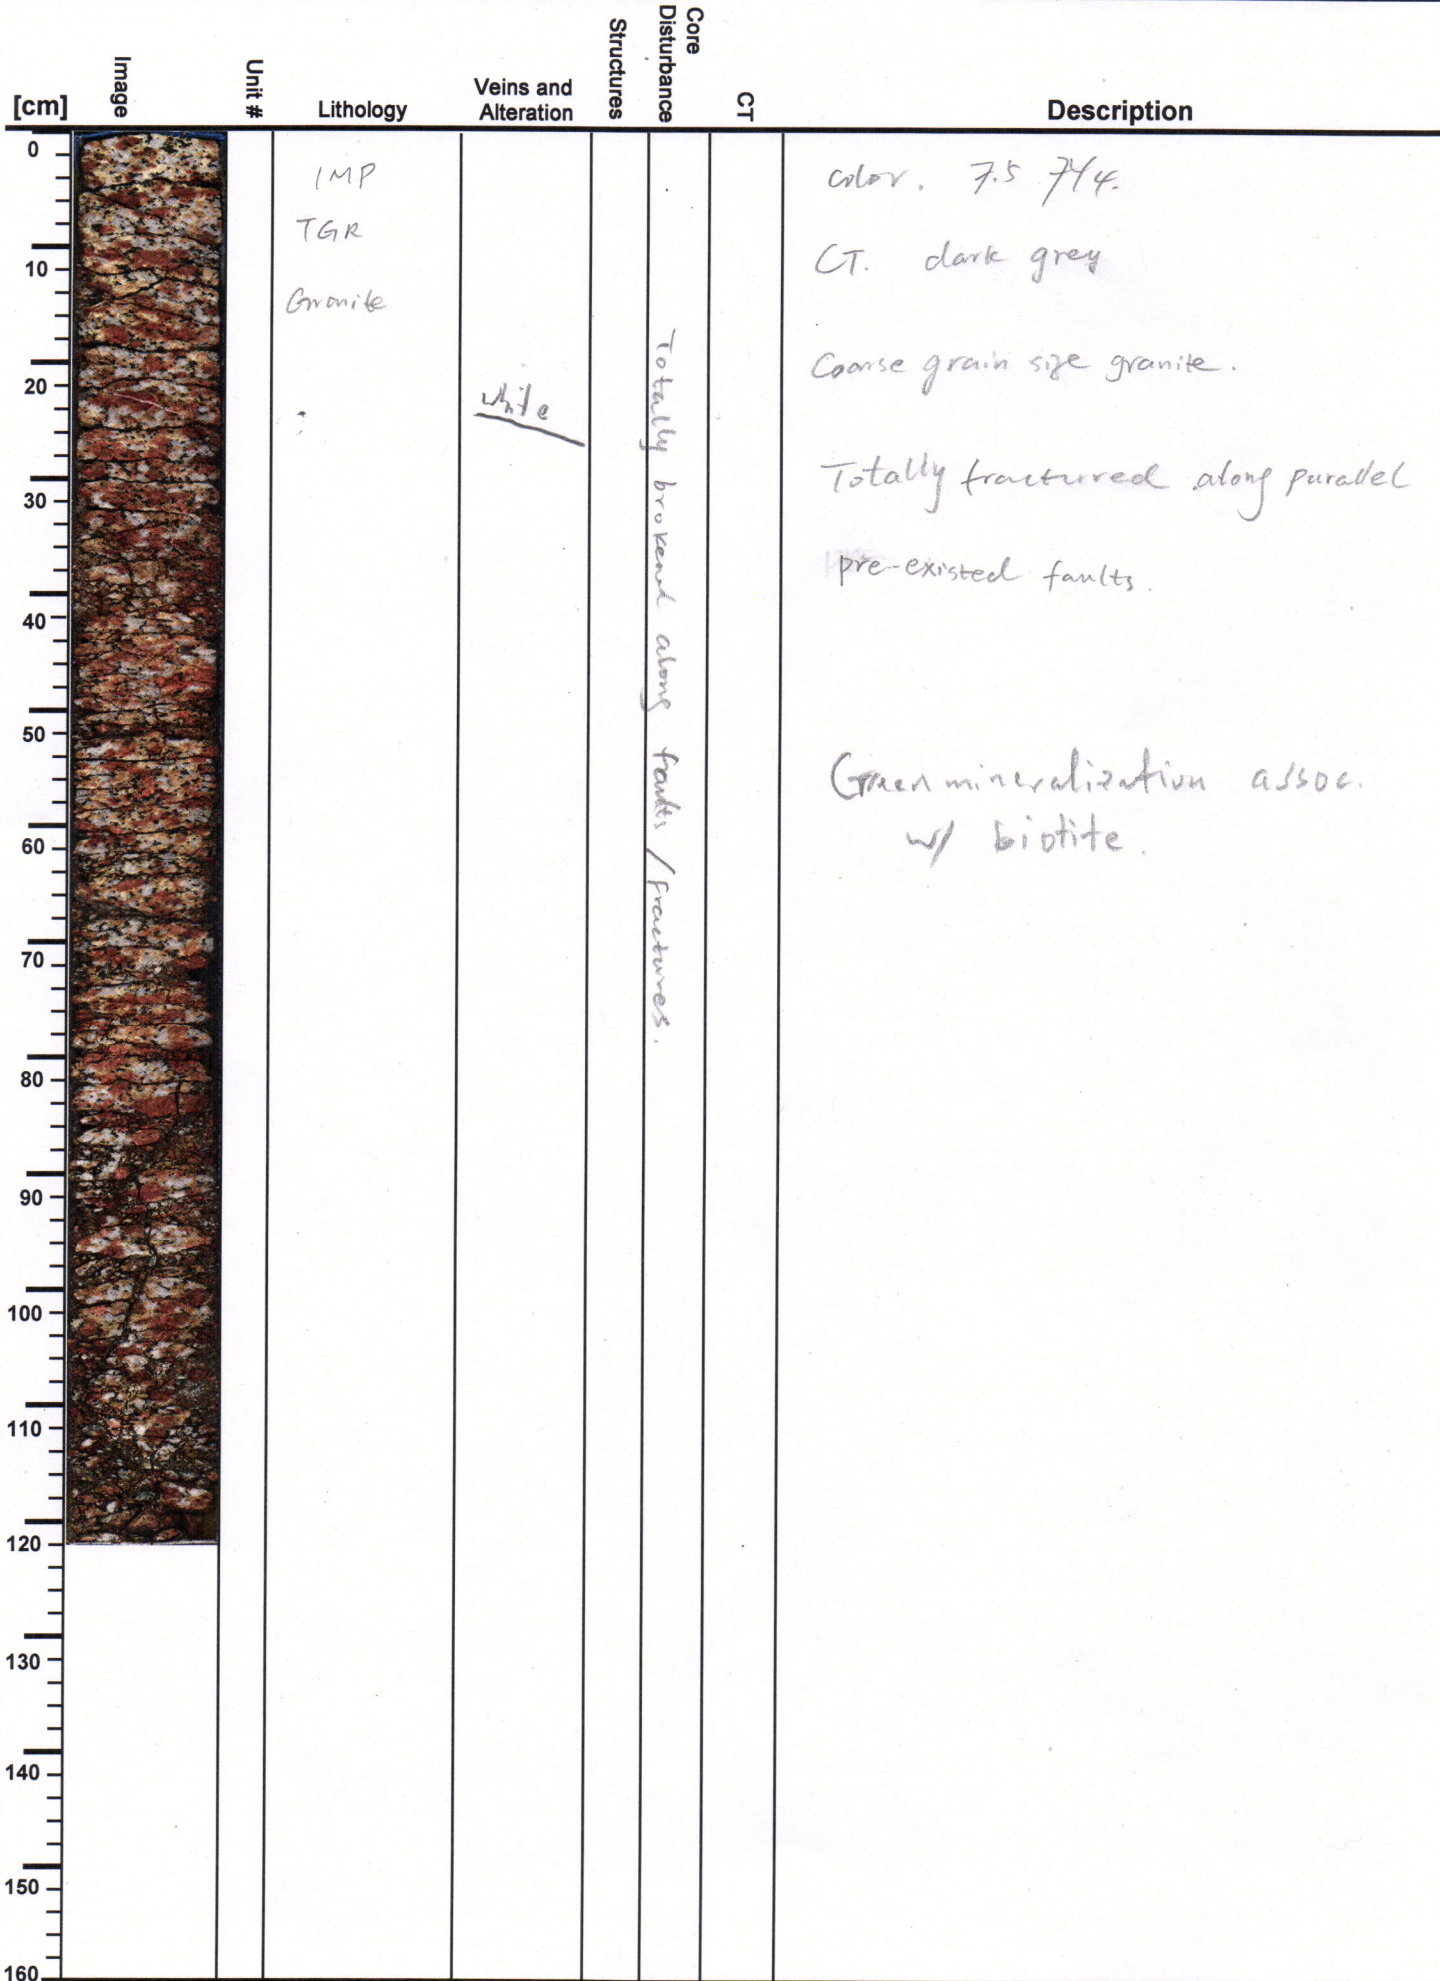 [cm]
Image
Unit #
Lithology
Veins and
Alteration
Structures
Core
Disturbance
CT
Description
0
10
20
30
40
50
60
70
80
90
100
110
120
130
140
150
160
IMP
TGR
Granite
white
Totally brokend along faults / fractures.
color. 7.5 7/4.
CT. dark grey
Coarse grain size granite.
Totally fracturred along parallel
pre-existed faults.
Green mineralization assoc.
w/ biotite.